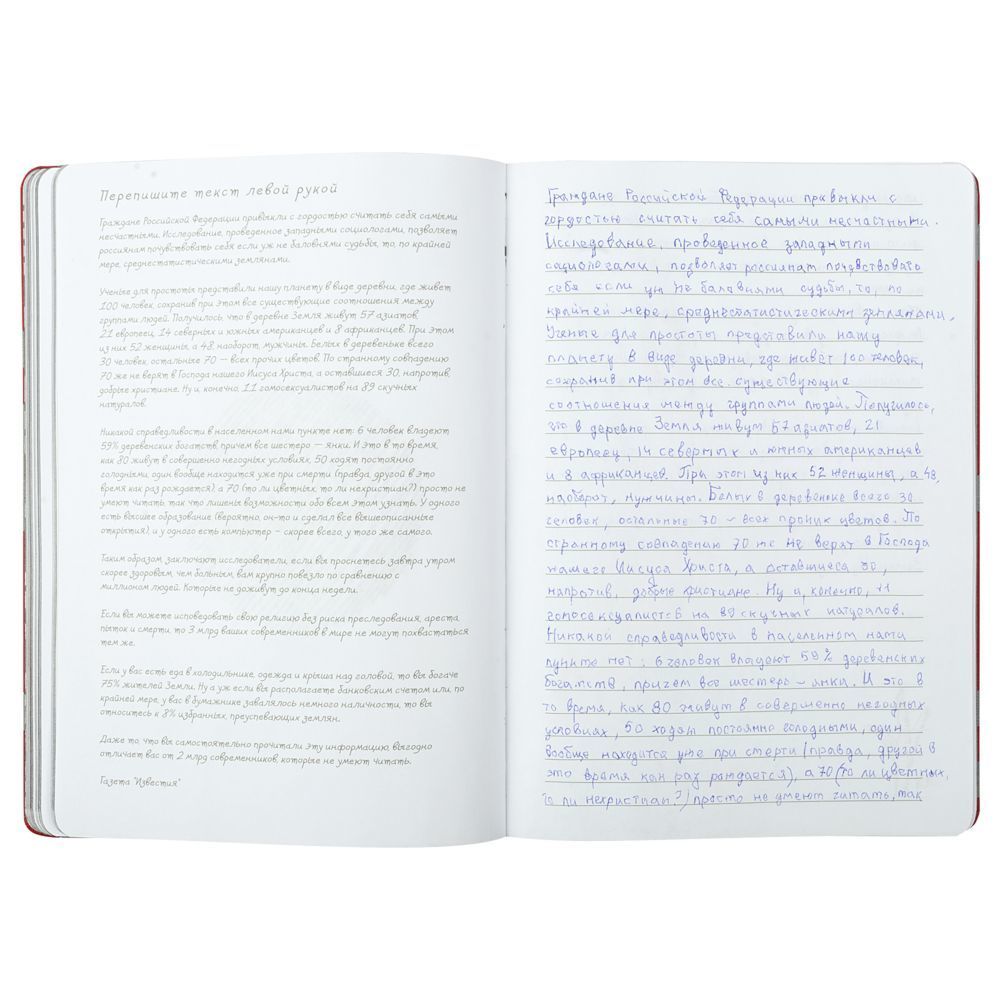 Перепишите текст левой рукой
Граждане Российской Федерации привыкли с гордостью считать себя самыми
несчастными. Исследование, проведенное западными социологами, позволяет
россиянам почувствовать себя если уж не баловнями судьбы, то, по крайней
мере, среднестатистическими землянами.
Ученые для простоты представили нашу планету в виде деревни, где живет
100 человек, сохранив при этом все существующие соотношения между
группами людей. Получилось, что в деревне Земля живут 57 азиатов,
21 европеец, 14 северных и южных американцев и 8 африканцев. При этом
из них 52 женщины, а 48, наоборот, мужчины. Белых в деревеньке всего
30 человек, остальные 70 — всех прочих цветов. По странному совпадению
70 же не верят в Господа нашего Иисуса Христа, а оставшиеся 30, напротив,
добрые христиане. Ну и, конечно, 11 гомосексуалистов на 89 скучных
натуралов.
Никакой справедливости в населенном нами пункте нет: 6 человек владеют
59% деревенских богатств, причем все шестеро — янки. И это в то время,
как 80 живут в совершенно негодных условиях, 50 ходят постоянно
голодными, один вообще находится уже при смерти (правда, другой в это
время как раз рождается), а 70 (то ли цветных, то ли нехристиан?) просто не
умеют читать, так что лишены возможности обо всем этом узнать. У одного
есть высшее образование (вероятно, он-то и сделал все вышеописанные
открытия), и у одного есть компьютер – скорее всего, у того же самого.
Таким образом, заключают исследователи, если вы проснетесь завтра утром
скорее здоровым, чем больным, вам крупно повезло по сравнению с
миллионом людей. Которые не доживут до конца недели.
Если вы можете исповедовать свою религию без риска преследования, ареста,
пыток и смерти, то 3 млрд ваших современников в мире не могут похвастаться
тем же.
Если у вас есть еда в холодильнике, одежда и крыша над головой, то вы богаче
75% жителей Земли. Ну а уж если вы располагаете банковским счетом или, по
крайней мере, у вас в бумажнике завалялось немного наличности, то вы
относитесь к 8% избранных, преуспевающих землян.
Даже то, что вы самостоятельно прочитали эту информацию, выгодно
отличает вас от 2 млрд современников, которые не умеют читать.
Газета "Известия"
Граждане Российской Федерации привыкли с
гордостью считать себя самыми несчастными.
Исследование, проведенное западными
социологами, позволяет россиянам почувствовать
себя если уж не баловнями судьбы, то, по
крайней мере, среднестатистическими землянами.
Ученые для простоты представили нашу
планету в виде деревни, где живёт 100 человек,
сохранив при этом все существующие
соотношения между группами людей. Получилось,
что в деревне Земля живут 57 азиатов, 21
европеец, 14 северных и южных американцев
и 8 африканцев. При этом из них 52 женщины, а 48,
наоборот, мужчины. Белых в деревеньке всего 30
человек, остальные 70 – всех прочих цветов. По
странному совпадению 70 же не верят в Господа
нашего Иисуса Христа, а оставшиеся 30,
напротив, добрые христиане. Ну и, конечно, 11
гомосексуалистов на 89 скучных натуралов.
Никакой справедливости в населенном нами
пункте нет: 6 человек владеют 59% деревенских
богатств, причем все шестеро – янки. И это в
то время, как 80 живут в совершенно негодных
условиях, 50 ходят постоянно голодными, один
вообще находится уже при смерти (правда, другой в
это время как раз рождается), а 70 (то ли цветных,
то ли нехристиан?) просто не умеют читать, так